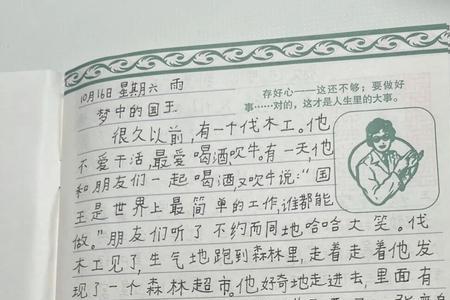 10月16日 星期六 雨
存好心——这还不够；要做好
事……对的，这才是人生里的大事。
梦中的国王
很久以前，有一个伐木工。他
不爱干活，最爱喝酒吹牛。有一天，他
和朋友们一起喝酒又吹牛说：“国
王是世界上最简单的工作，谁都能
做。”朋友们听了不约而同地哈哈大笑。伐
木工见了，生气地跑到森林里，走着走着他发
现了一个森林超市。他好奇地走进去，里面有